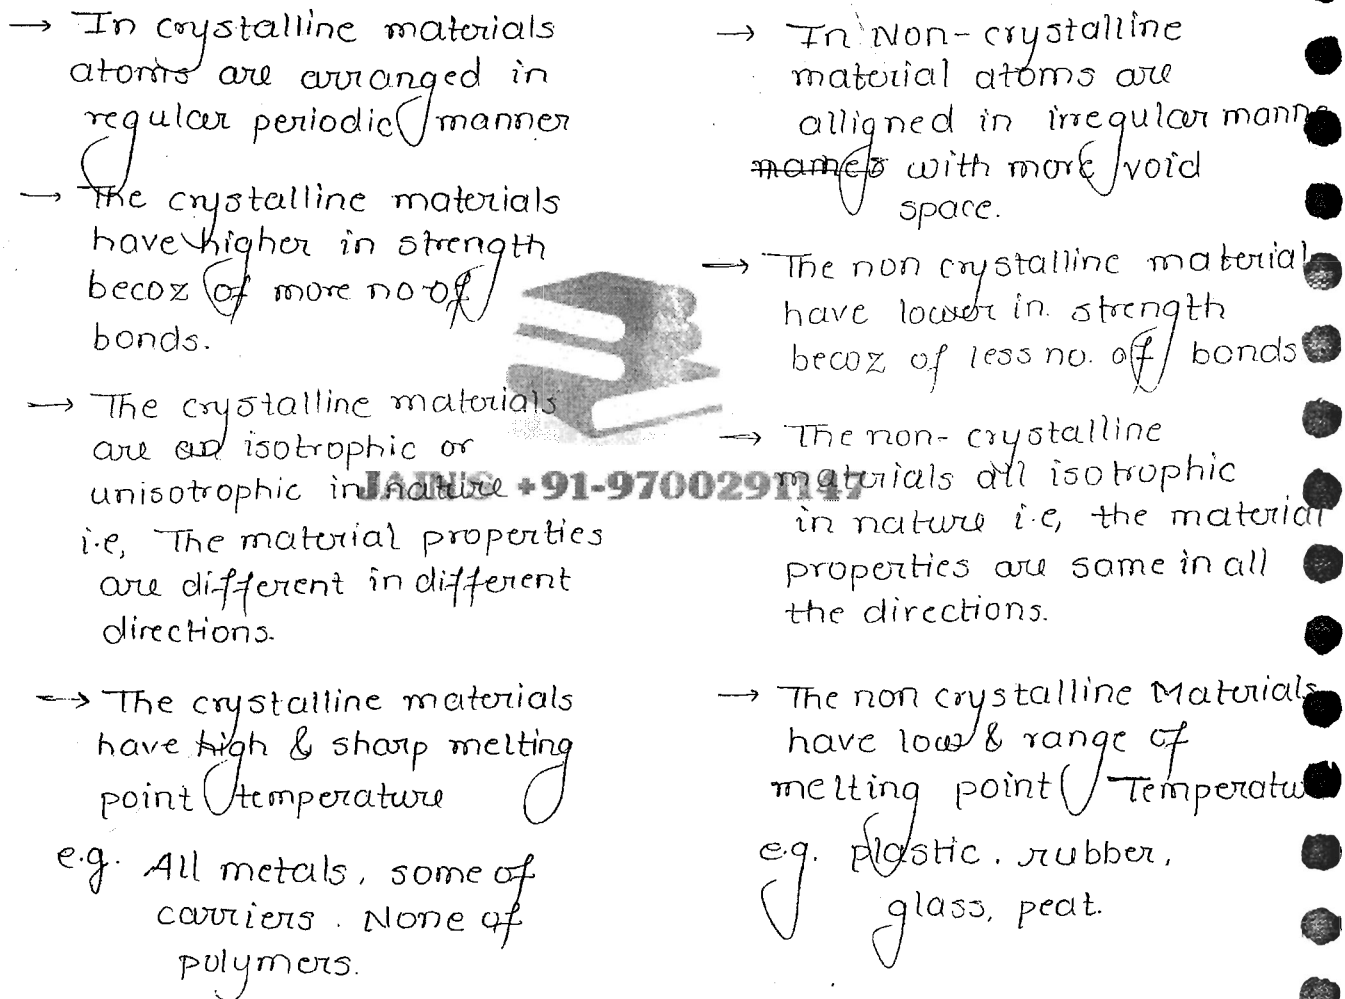 → In crystalline materials
atoms are arranged in
regular periodic manner
→ The crystalline materials
have higher in strength
becoz of more no of
bonds.
→ The crystalline materials
are an isotrophic or
unisotrophic in nature
i.e, The material properties
are different in different
directions.
→ The crystalline materials
have high & sharp melting
point temperature
e.g. All metals, some of
carriers. None of
polymers.
→ In Non-crystalline
material atoms are
alligned in irregular manne
names with more void
space.
→ The non crystalline material
have lower in strength
becoz of less no. of bonds
→ The non-crystalline
materials all isotrophic
in nature i.e, the material
properties are same in all
the directions.
→ The non crystalline Materials
have low & range of
melting point Temperatu
e.g. plastic. rubber,
glass, peat.
+91-9700291147